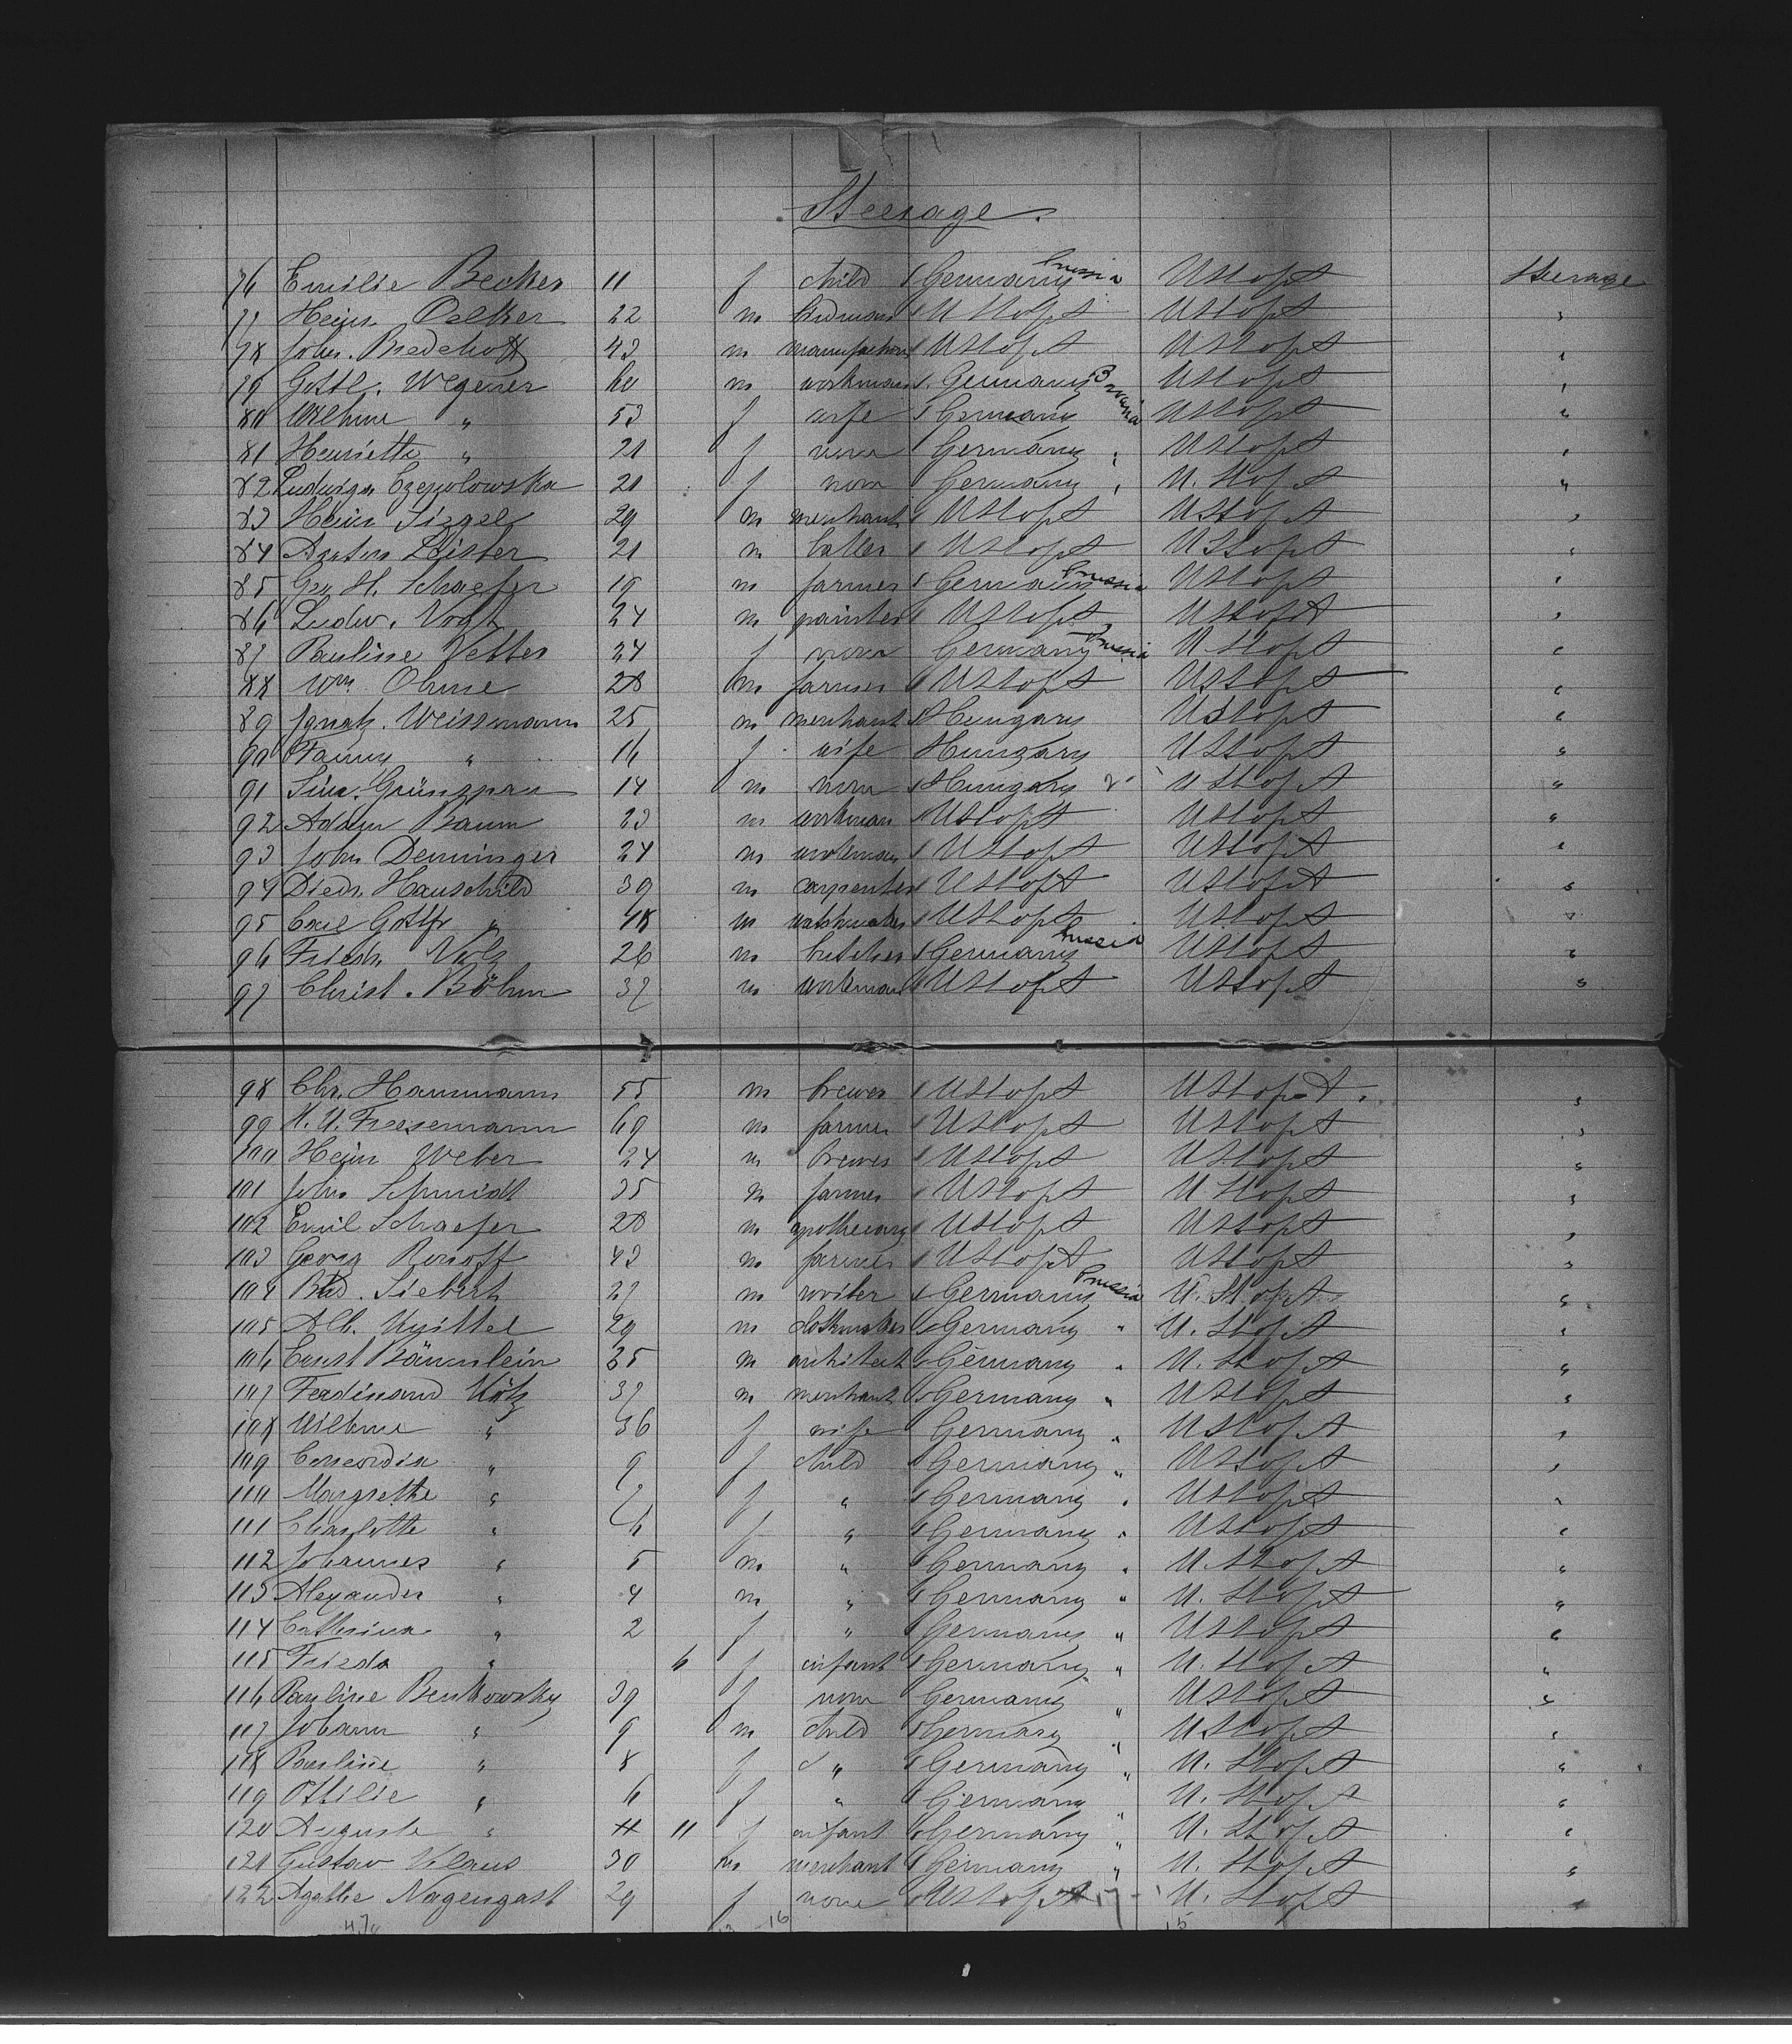 Steerage.
76 Emilie Becker 11 f child Germany Prussia U S of A Steerage
77 Heinr. Oelker 22 m U S of A U S of A "
78 John. 43 m U S of A U S of A "
79 Gottl. Wegener 60 m workman Germany Prussia U S of A "
80 Wilhme " 53 f wife Germany U S of A "
81 Henriette " 21 f none Germany " U S of A "
82 Ludwiga 21 f none Germany " U. S of A "
83 Heinr Siegel 29 m merchant U S of A U S of A "
84 21 m U S of A U S of A "
85 Geo. H. Schaefer 19 m farmer Germany Prussia U S of A "
86 Ludw. Vogt 24 m painter U S of A U S of A "
87 Pauline Vetter 24 f none Germany Prussia U S of A "
88 Wm. Ohme 28 m farmer U S of A U S of A "
89 Ignatz. Weissmann 25 m merchant Hungary U S of A "
90 Fanny " 16 f wife Hungary U S of A "
91 14 m none Hungary U S of A "
92 Adam Baum 23 m workman U S of A U S of A "
93 John Denninger 24 m workman U S of A U S of A "
94 Diedr. Hauschild 39 m carpenter U S of A U S of A "
95 " 48 m watchmaker U S of A U S of A "
96 Friedr. Volz 26 m butcher Germany Prussia U S of A "
97 Christ. Böhm 37 m workman U S of A U S of A "
98 Chr. Hammann 55 m brewer U S of A U S of A. "
99 69 m farmer U S of A U S of A "
100 Heinr Weber 24 m brewer U S of A U S of A "
101 John Schmidt 35 m farmer U S of A U S of A "
102 Emil Schaefer 28 m apothecary U S of A U S of A "
103 Georg 43 m farmer U S of A U S of A "
104 Siebert 27 m writer Germany Prussia U. S of A "
105 Alb. Knittel 29 m Germany " U. S of A "
106 Ernst Bäumlein 35 m architect Germany " U. S of A "
107 Ferdinand Kötz 37 m merchant Germany " U S of A "
108 Wilhme " 36 f wife Germany " U S of A "
109 Concordia " 9 f child Germany " U S of A "
110 Margrethe " 7 f " Germany " U S of A "
111 Charlotte " 6 f " Germany " U S of A "
112 Johannes " 5 m " Germany " U. S of A "
113 Alexander " 4 m " Germany " U. S of A "
114 Catherina " 2 f " Germany " U S of A "
115 Frieda " 6 f infant Germany " U. S of A "
116 Pauline Benkowsky 39 f none Germany " U S of A "
117 Johann " 9 m child Germany " U S of A "
118 Pauline " 8 f " Germany " U. S of A "
119 Ottilie " 6 f " Germany " U. S of A "
120 Auguste " 11 f infant Germany " U. S of A "
121 Gustav Klaus 30 m merchant Germany " U. S of A "
122 Agathe Nagengast 29 f none U S of A U. S of A "